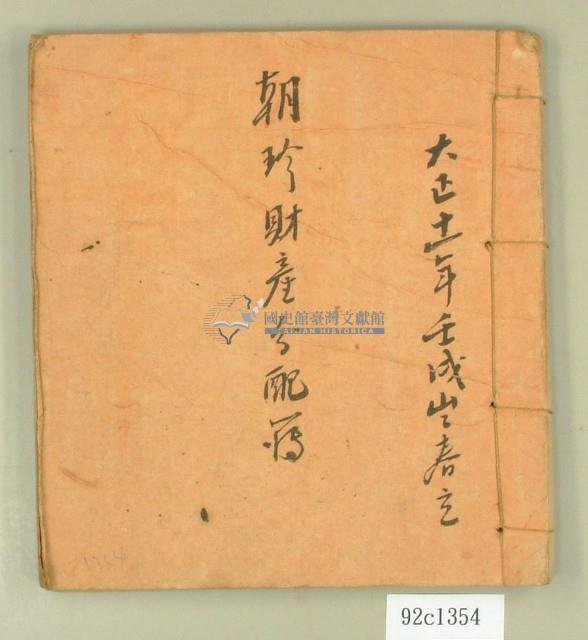 大正十一年壬戌岁春立
朝珍財產分配簿
國史館臺灣文獻館
TAIWAN HISTORICA
1764
92c1354